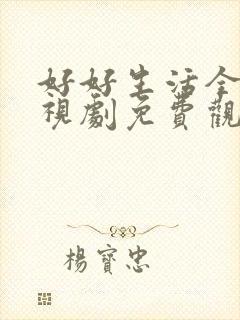 好好生活全
視劇免費觀
楊寶忠